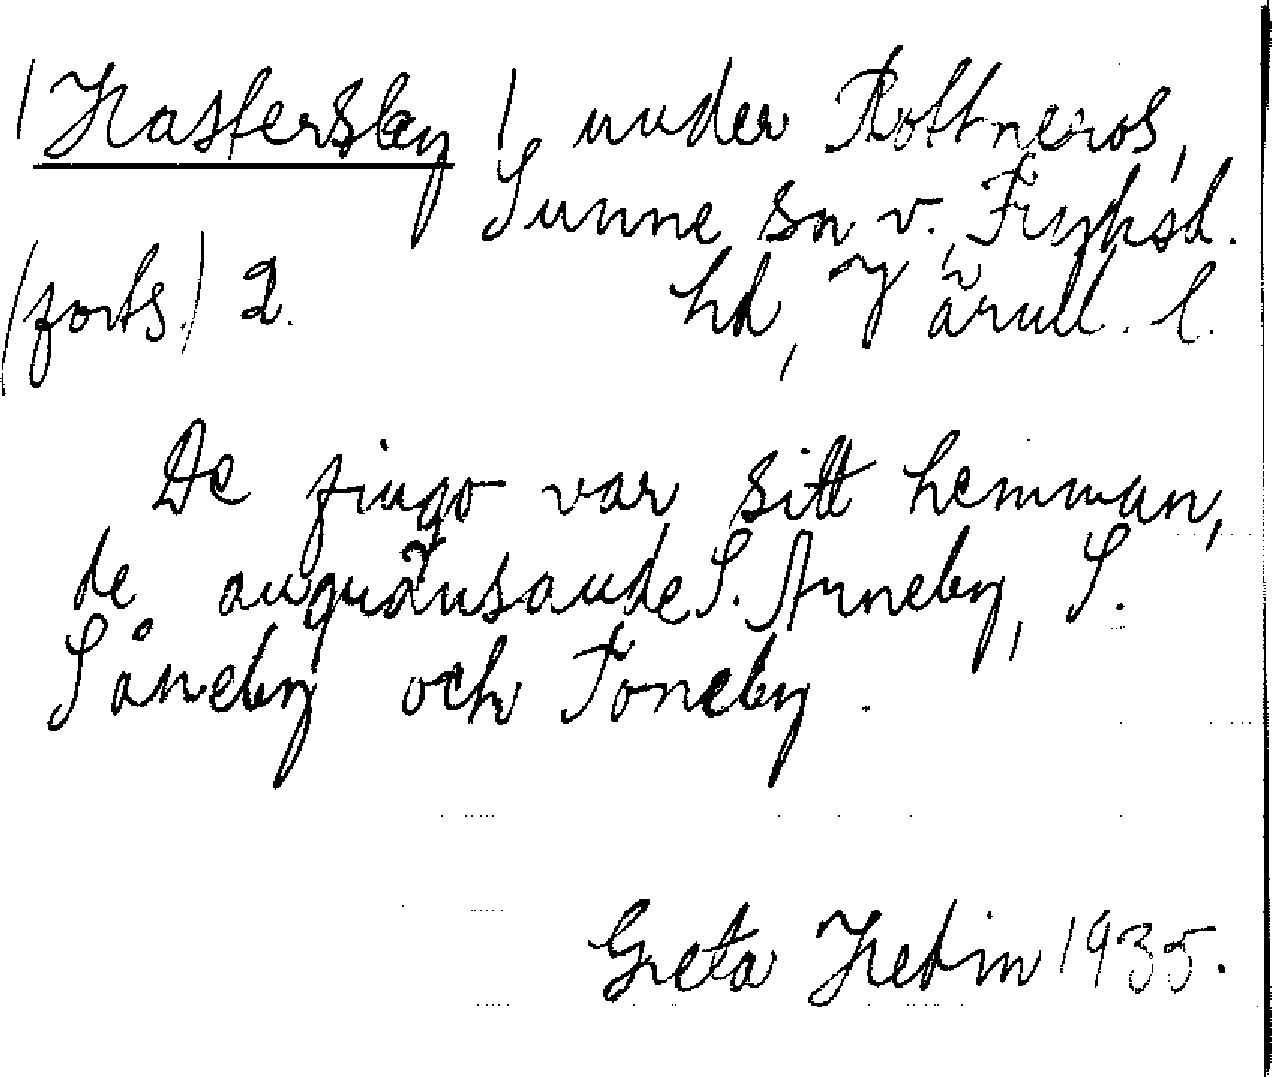 /Hastersby/ under Rottneros,
Sunne sn v. Fryksd.
(forts.) 2. hd, Värml. l.
De fingo var sitt hemman,
de angränsande S. Arneby, S.
Såneby och Toneby.
Greta Hedin 1935.